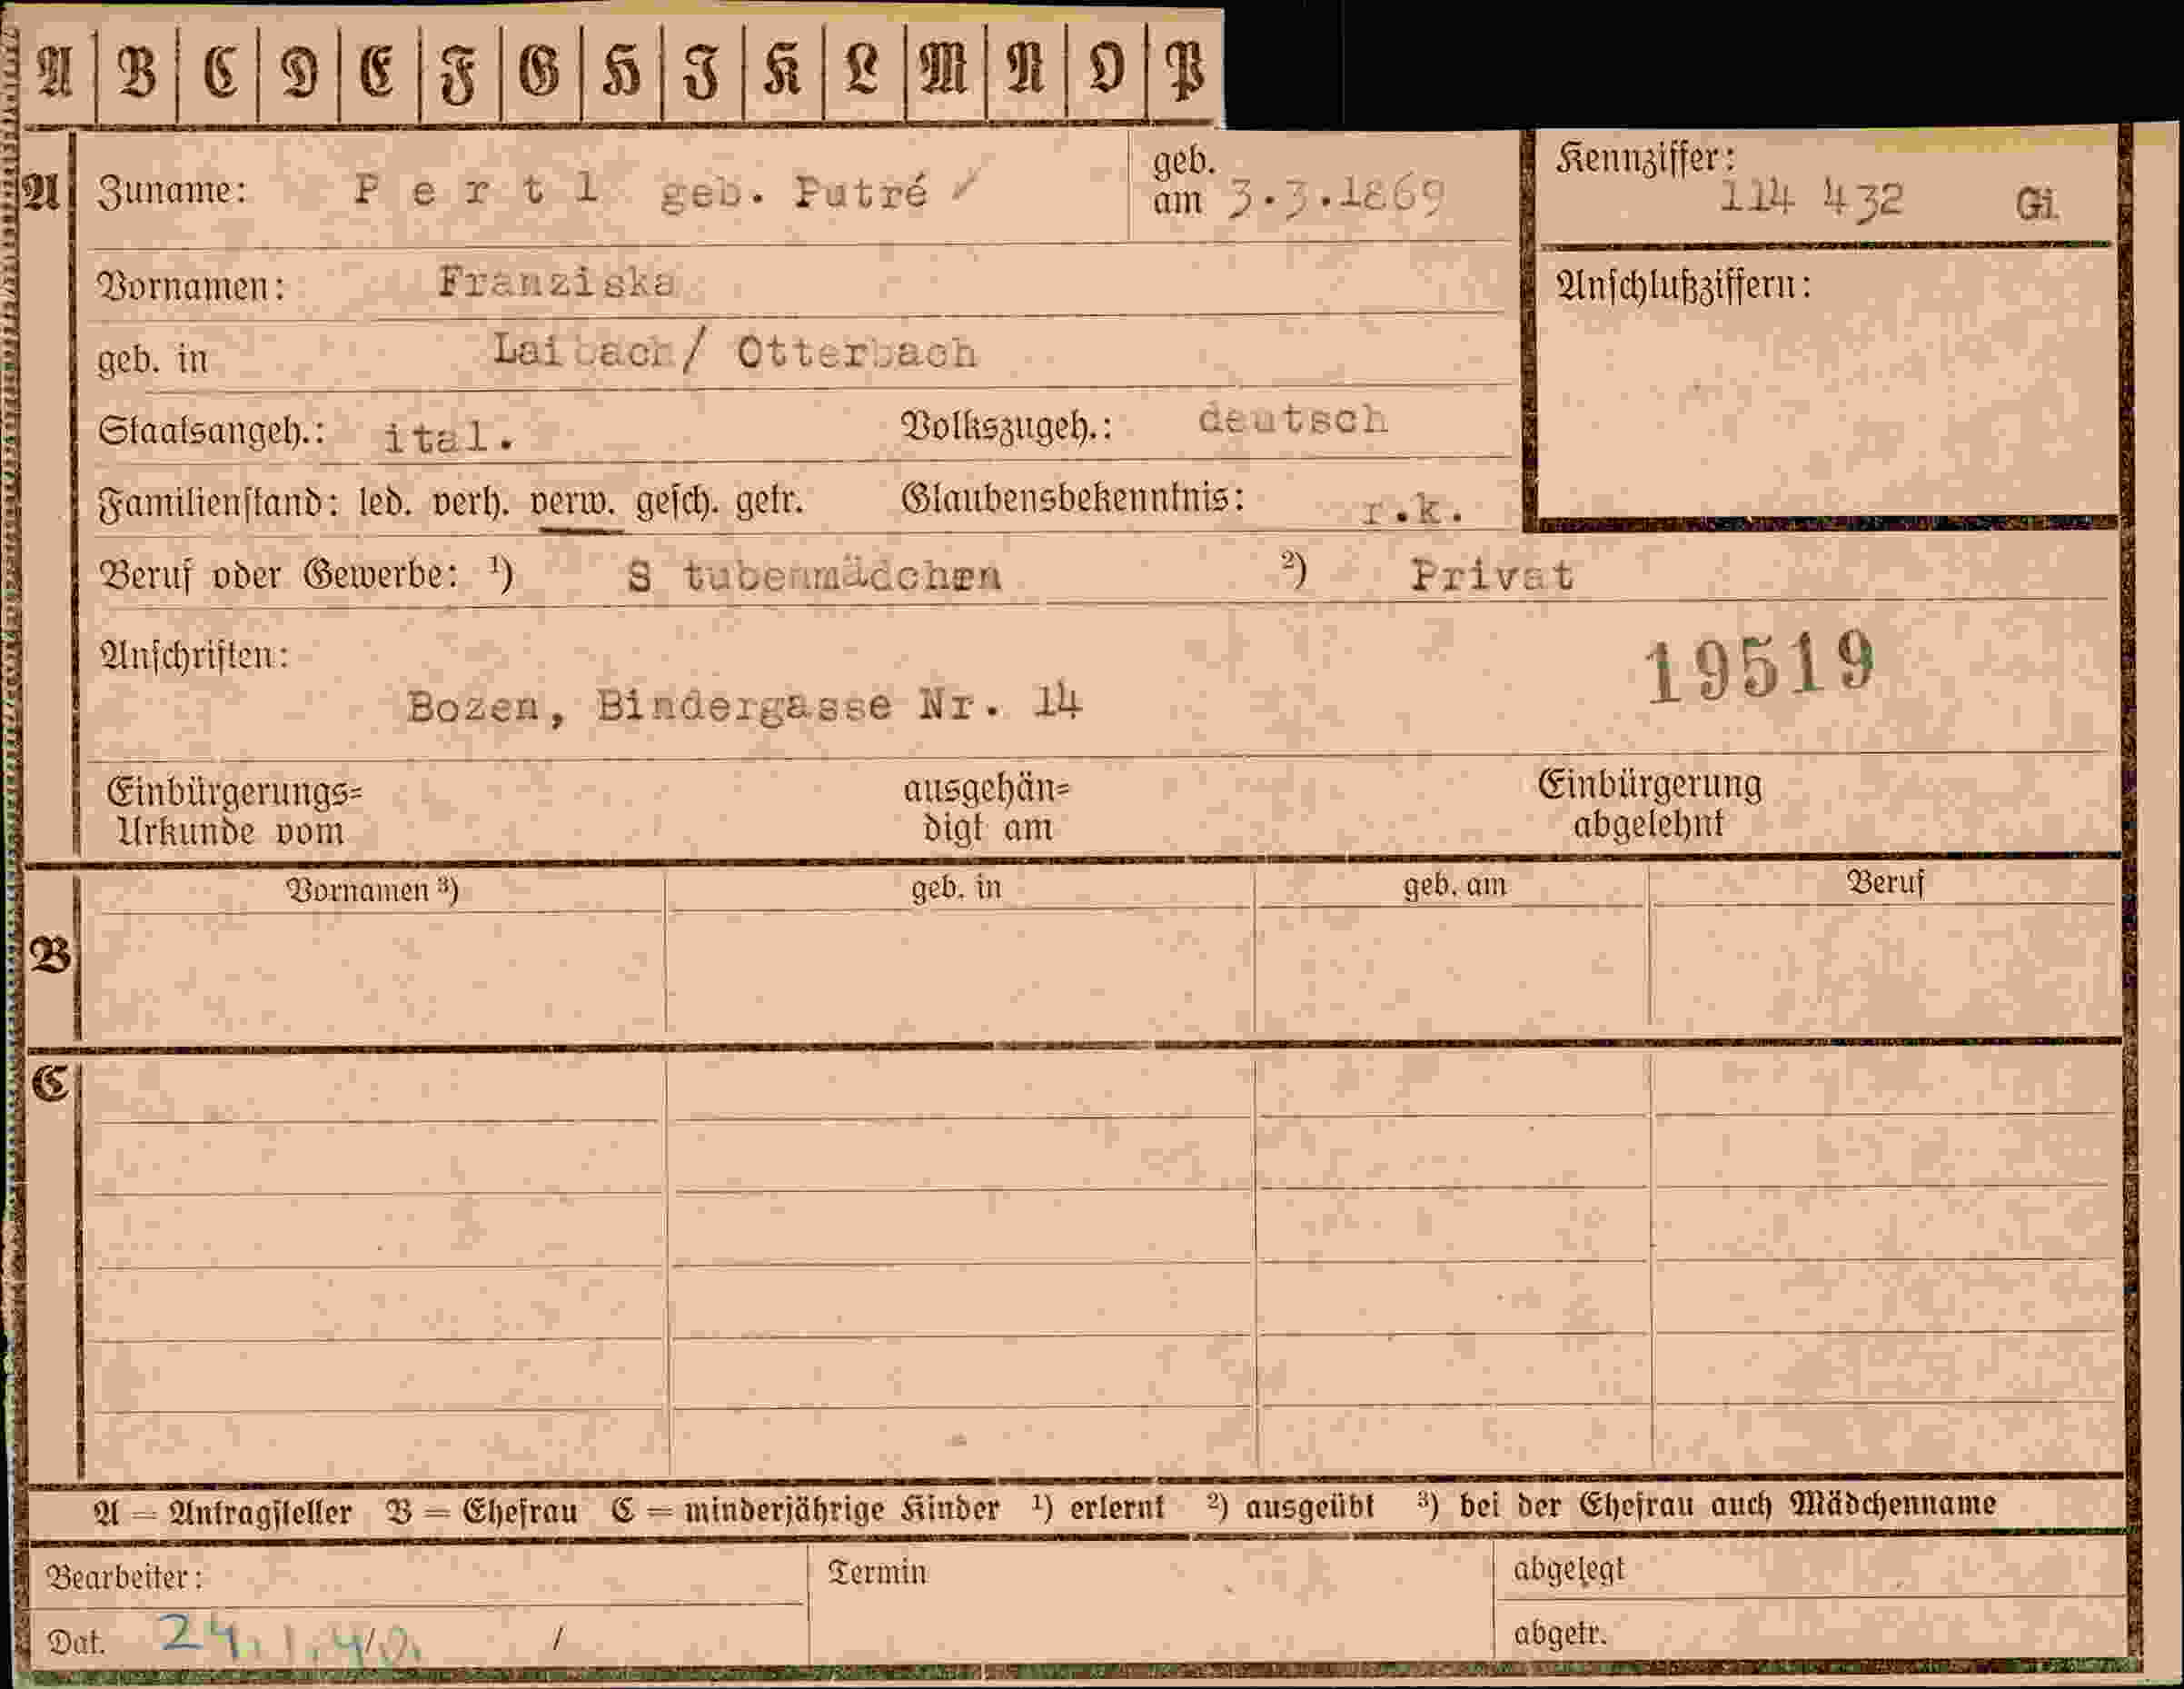 A B C D E F G H J K L M N O P
A Zuname: Pertl geb. Putré geb. am 3.3.1869 Kennziffer: 114 432 Gi.
Vornamen: Franziska Anschlußziffern:
geb. in Laibach/ Otterbach
Staatsangeh.: ital. Volkszugeh.: deutsch
Familienstand: led. verh. verw. gesch. getr. Glaubensbekenntnis: r.k.
Beruf oder Gewerbe: 1) S tubenmädchen 2) Privat
Anschriften: 19519
Bozen, Bindergasse Nr. 14
Einbürgerungs= ausgehän= Einbürgerung
Urkunde vom digt am abgelehnt
Vornamen 3) geb. in geb. am Beruf
B
C
A = Antragsteller B = Ehefrau C = minderjährige Kinder 1) erlernt 2) ausgeübt 3) bei der Ehefrau auch Mädchenname
Bearbeiter: Termin abgelegt
Dat. 24.1.40. / abgetr.